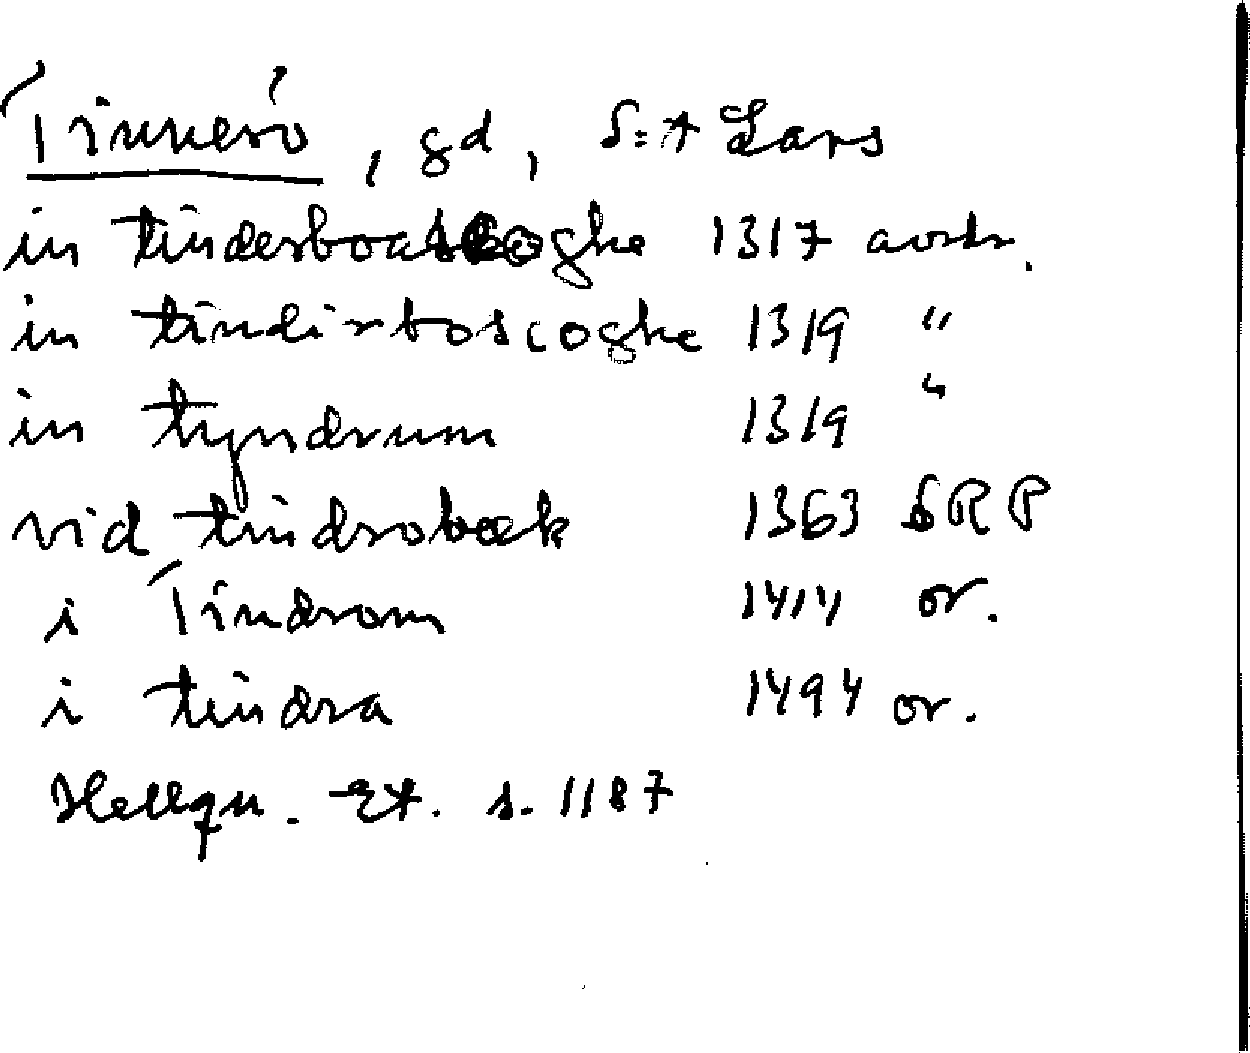 Tinnerö, gd, S:t Lars
in tinderboascoghe 1317 avskr.
in tindirboscoghe 1319 "
in tyndrum 1319 "
vid tindrobæk 1363 SRP
i Tindrom 1414 or.
i tindra 1494 or.
Hellqu. Et. s. 1187